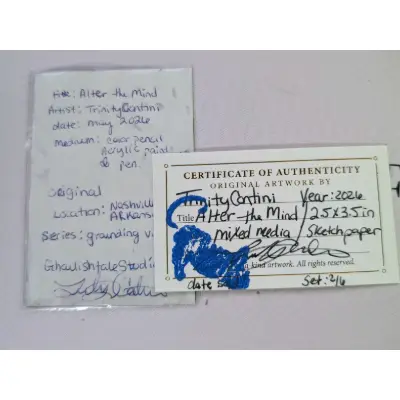 Title: Alter the Mind
Artist: Trinity Contini
date: may 2026
medium: color pencil
Acrylic paint
& pen
Original
Location: Nashville
Arkansas
Series: grounding
Ghoulishtale Studi
CERTIFICATE OF AUTHENTICITY
ORIGINAL ARTWORK BY
Trinity Contini Year: 2026
Title Alter the Mind 2.5x3.5in
mixed media Sketchpaper
kind artwork. All rights reserved.
date Set: 2/6